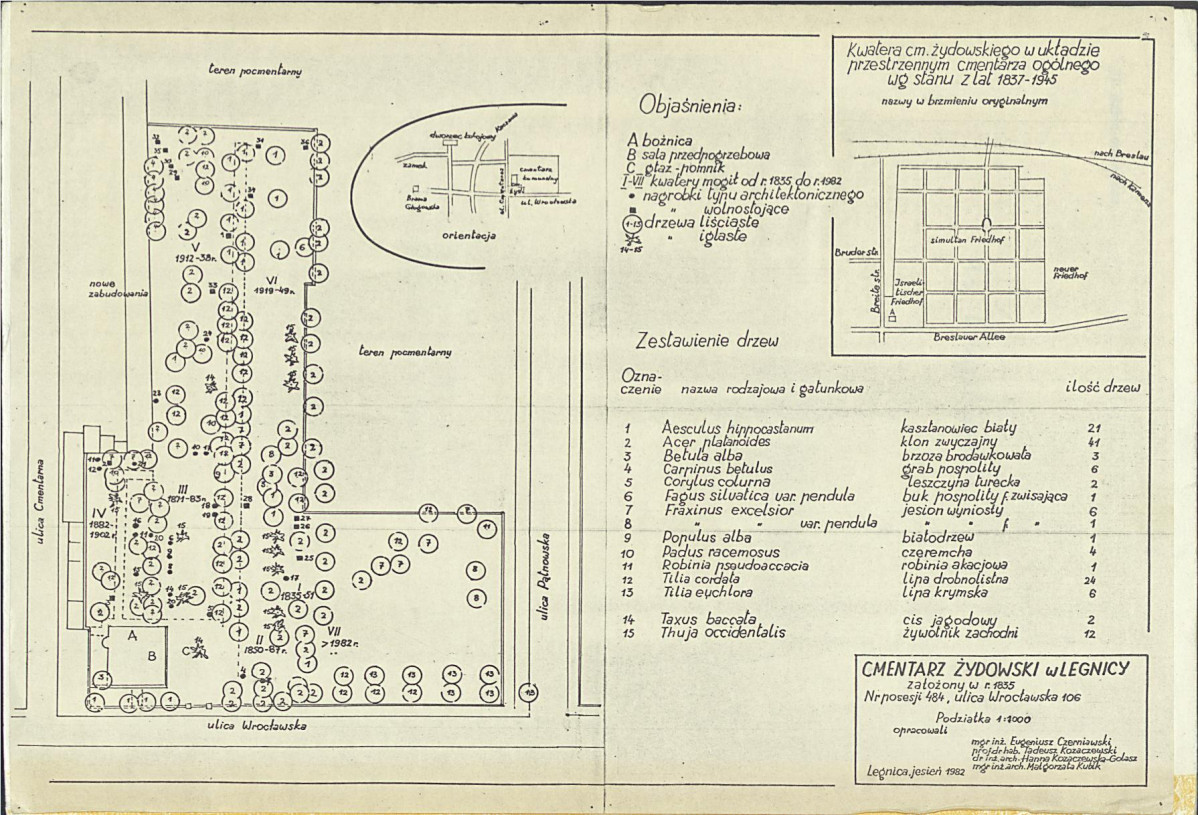 teren pocmentarny
nowe
zabudowania
ulica Cmentarna
V
1912-38r.
VI
1919-49r.
teren pocmentarny
III
1871-83r.
IV
1882-
1902r.
I
1835-51
II
1850-87r.
VII
>1982r.
A
B
C
ulica Pątnowska
ulica Wrocławska
dworzec kolejowy
Kunice
zamek
Brama
Głogowska
ul. Cmentarna
cmentarz
komunalny
ul. Wrocławska
orientacja
Objaśnienia:
A bożnica
B sala przedpogrzebowa
C głaz-pomnik
I-VII kwatery mogił od r. 1835 do r. 1982
• nagrobki typu architektonicznego
■ " wolnostojące
1-13 drzewa liściaste
14-15 " iglaste
Kwatera cm. żydowskiego w układzie
przestrzennym cmentarza ogólnego
wg stanu z lat 1837-1945
nazwy w brzmieniu oryginalnym
nach Breslau
simultan Friedhof
Bruder str.
Breite str.
Israeli-
tischer
Friedhof
A
neuer
Friedhof
Breslauer Allee
Zestawienie drzew
Ozna-
czenie nazwa rodzajowa i gatunkowa ilość drzew
1 Aesculus hippocastanum kasztanowiec biały 21
2 Acer platanoides klon zwyczajny 41
3 Betula alba brzoza brodawkowata 3
4 Carpinus betulus grab pospolity 6
5 Corylus colurna leszczyna turecka 2
6 Fagus silvatica var. pendula buk pospolity f. zwisająca 1
7 Fraxinus excelsior jesion wyniosły 6
8 " " var. pendula " " f. " 1
9 Populus alba białodrzew 1
10 Padus racemosus czeremcha 4
11 Robinia pseudoaccacia robinia akacjowa 1
12 Tilia cordata lipa drobnolistna 24
13 Tilia euchlora lipa krymska 6
14 Taxus baccata cis jagodowy 2
15 Thuja occidentalis żywotnik zachodni 12
CMENTARZ ŻYDOWSKI w LEGNICY
założony w r. 1835
Nr posesji 484, ulica Wrocławska 106
Podziałka 1:1000
opracowali
mgr inż. Eugeniusz Czerniawski
prof. dr hab. Tadeusz Kozaczewski
dr inż. arch. Hanna Kozaczewska-Golasz
mgr inż. arch. Małgorzata Kulik
Legnica, jesień 1982